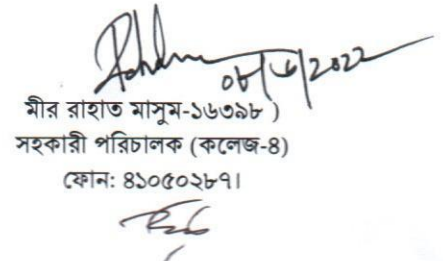 ০৮/৬/2022
মীর রাহাত মাসুম-১৬৩৯৮ )
সহকারী পরিচালক (কলেজ-4)
ফোন: ৪১০৫০২৮৭।